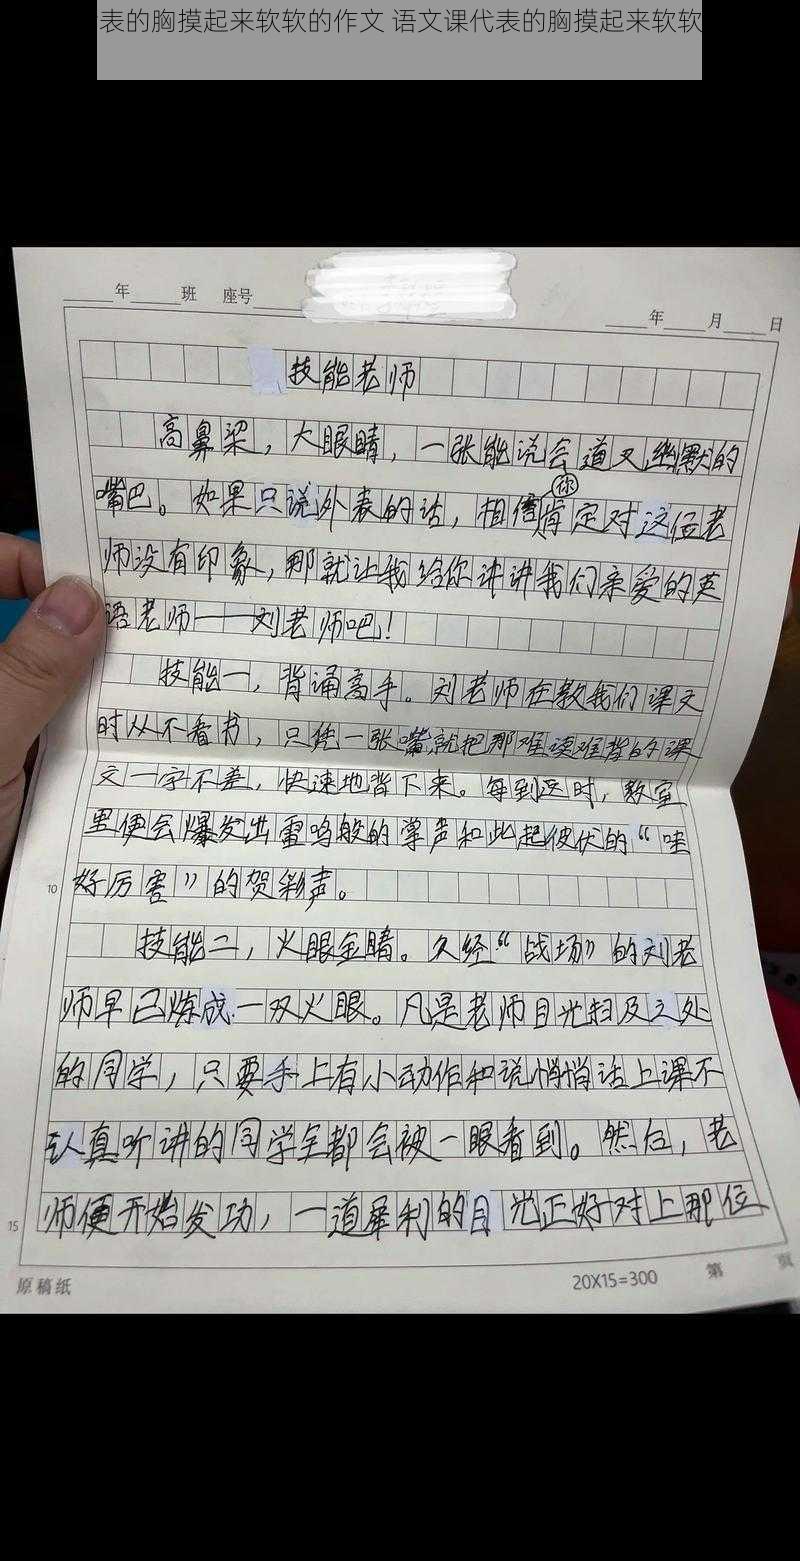 年 班 座号
年 月 日
技能老师
高鼻梁，大眼睛，一张能说会道又幽默的
嘴巴。如果只说外表的话，相信你肯定对这位老
师没有印象，那就让我给你讲讲我们亲爱的英
语老师——刘老师吧！
技能一，背诵高手。刘老师在教我们课文
时从不看书，只凭一张嘴，就把那难读难背的课
文一字不差，快速地背下来。每到这时，教室
里便会爆发出雷鸣般的掌声和此起彼伏的“哇
好厉害”的贺彩声。
10
技能二，火眼金睛。久经“战场”的刘老
师早已炼成一双火眼。凡是老师目光扫及之处
的同学，只要手上有小动作和说悄悄话上课不
认真听讲的同学全都会被一眼看到。然后，老
师便开始发功，一道犀利的目光正好对上那位
15
原稿纸
20X15=300
第 页